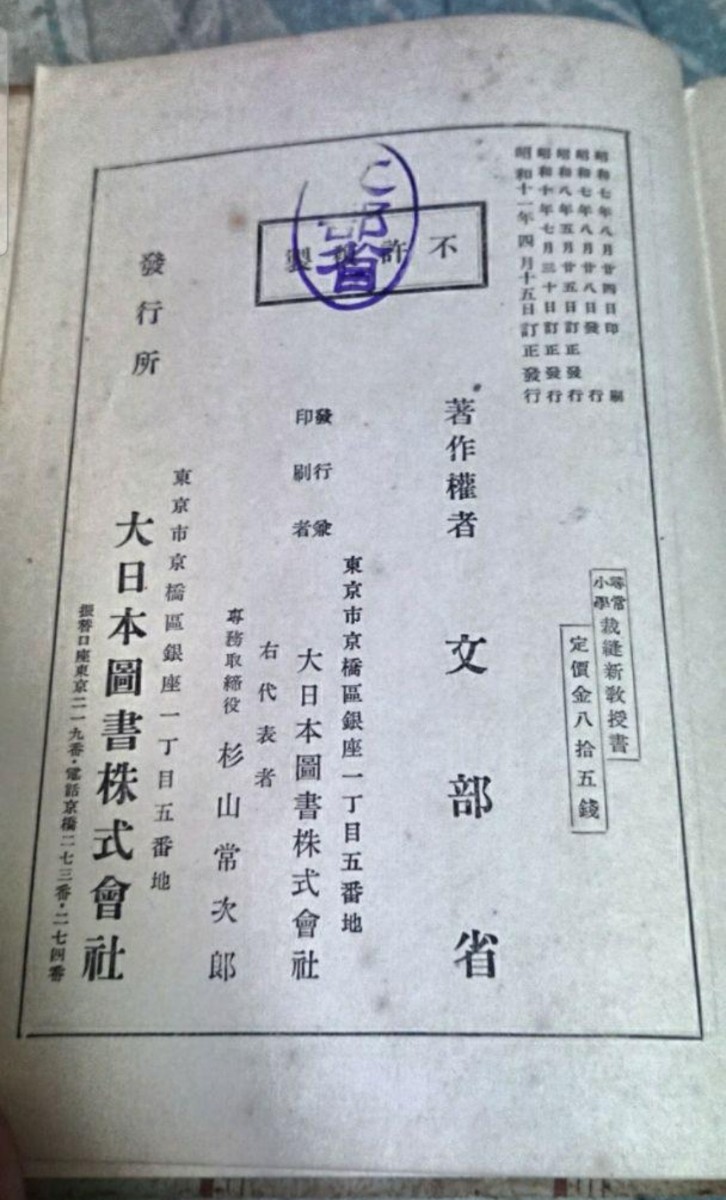 昭和七年八月廿四日印刷
昭和七年八月廿八日發行
昭和八年五月廿五日訂正發行
昭和十年七月三十日訂正發行
昭和十一年四月十五日訂正發行
尋常小學裁縫新教授書
定價金八拾五錢
不許複製
部省
著作權者 文部省
發行兼印刷者
東京市京橋區銀座一丁目五番地
大日本圖書株式會社
右代表者
專務取締役 杉山常次郎
發行所
東京市京橋區銀座一丁目五番地
大日本圖書株式會社
振替口座東京二一九番・電話京橋二七三番・二七四番